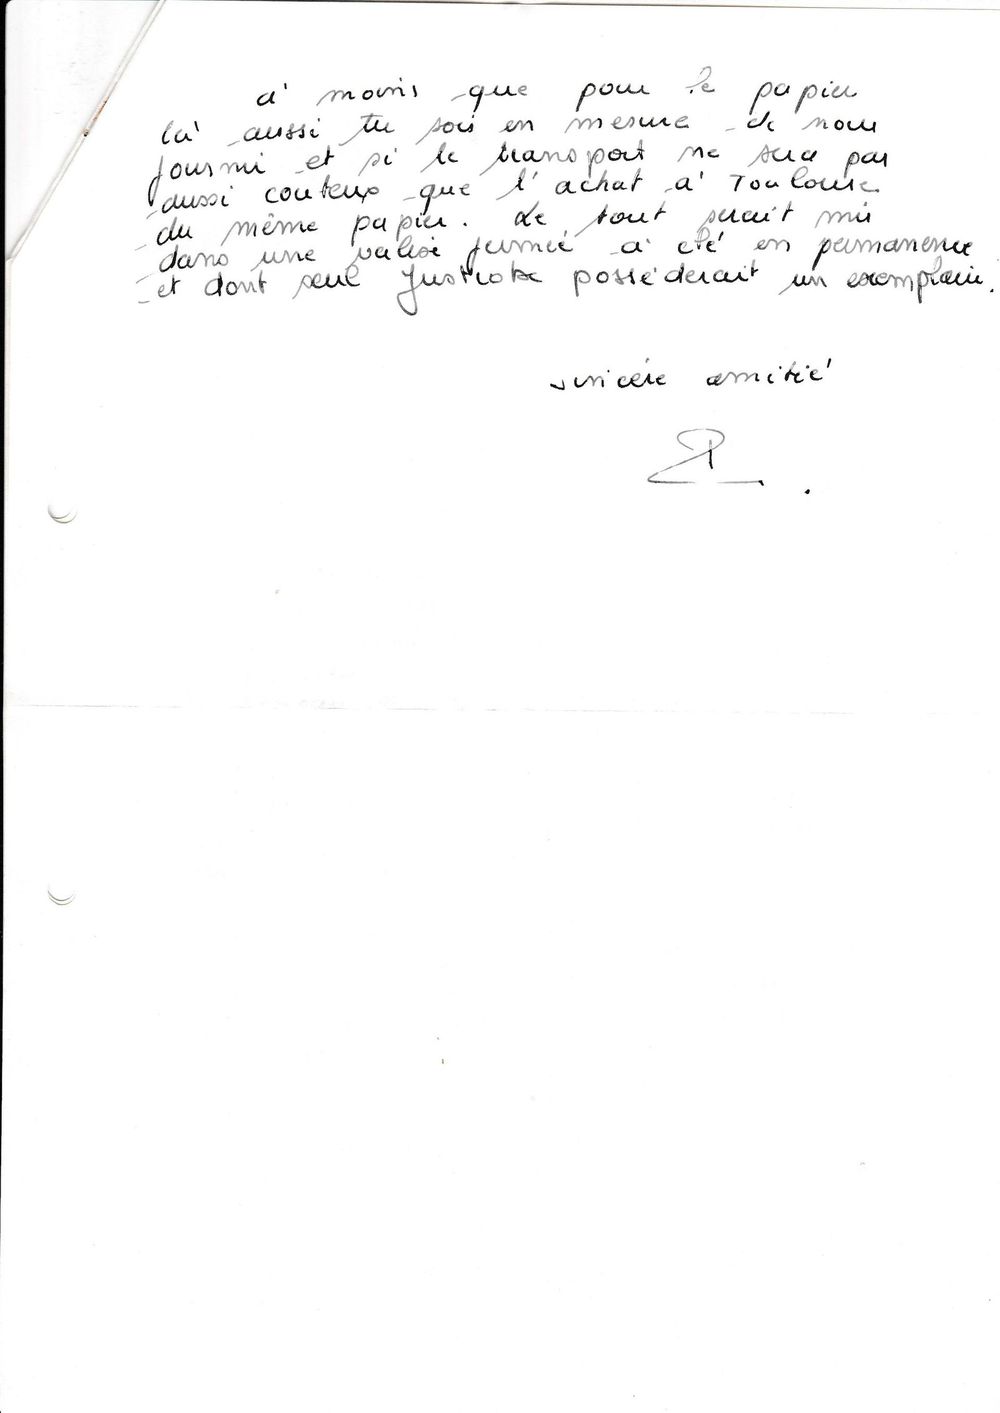 à moins que pour le papier
là aussi tu sois en mesure de nous
fournir et si le transport ne sera pas
aussi couteux que l'achat à Toulouse
du même papier. Le tout serait mis
dans une valise fermée à clé en permanence
et dont seul posséderait un exemplaire.
sincère amitié